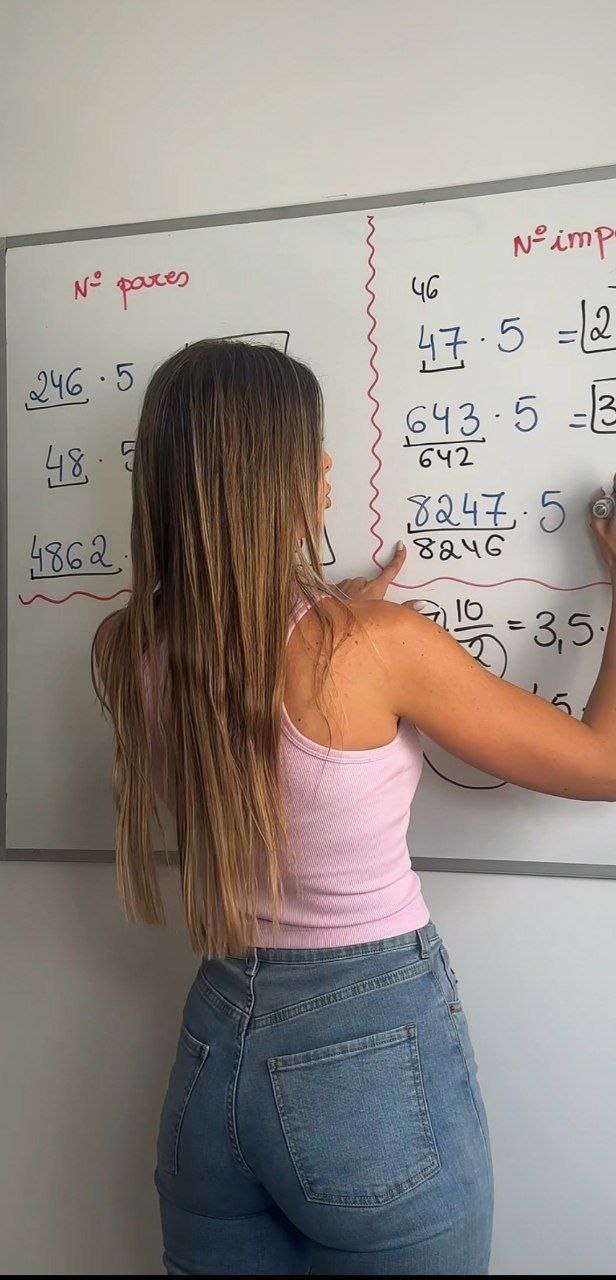 Nº pares
246 · 5
48 · 5
4862 ·
Nº imp
46
47 · 5 = 2
643 · 5 = 3
642
8247 · 5
8246
10
2
= 3,5 ·
5